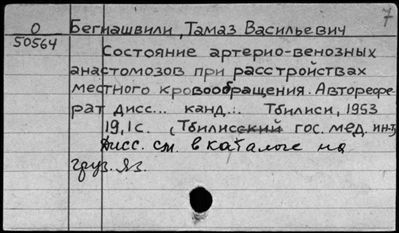 7
О Бегиашвили, Тамаз Васильевич
50564
Состояние артерио-венозных
анастомозов при расстройствах
местного кровообращения. Авторефе-
рат дисс... канд.:. Тбилиси, 1953
19,1с. (Тбилисский гос. мед. ин-т)
Дисс. см. в каталоге на
груз. яз.